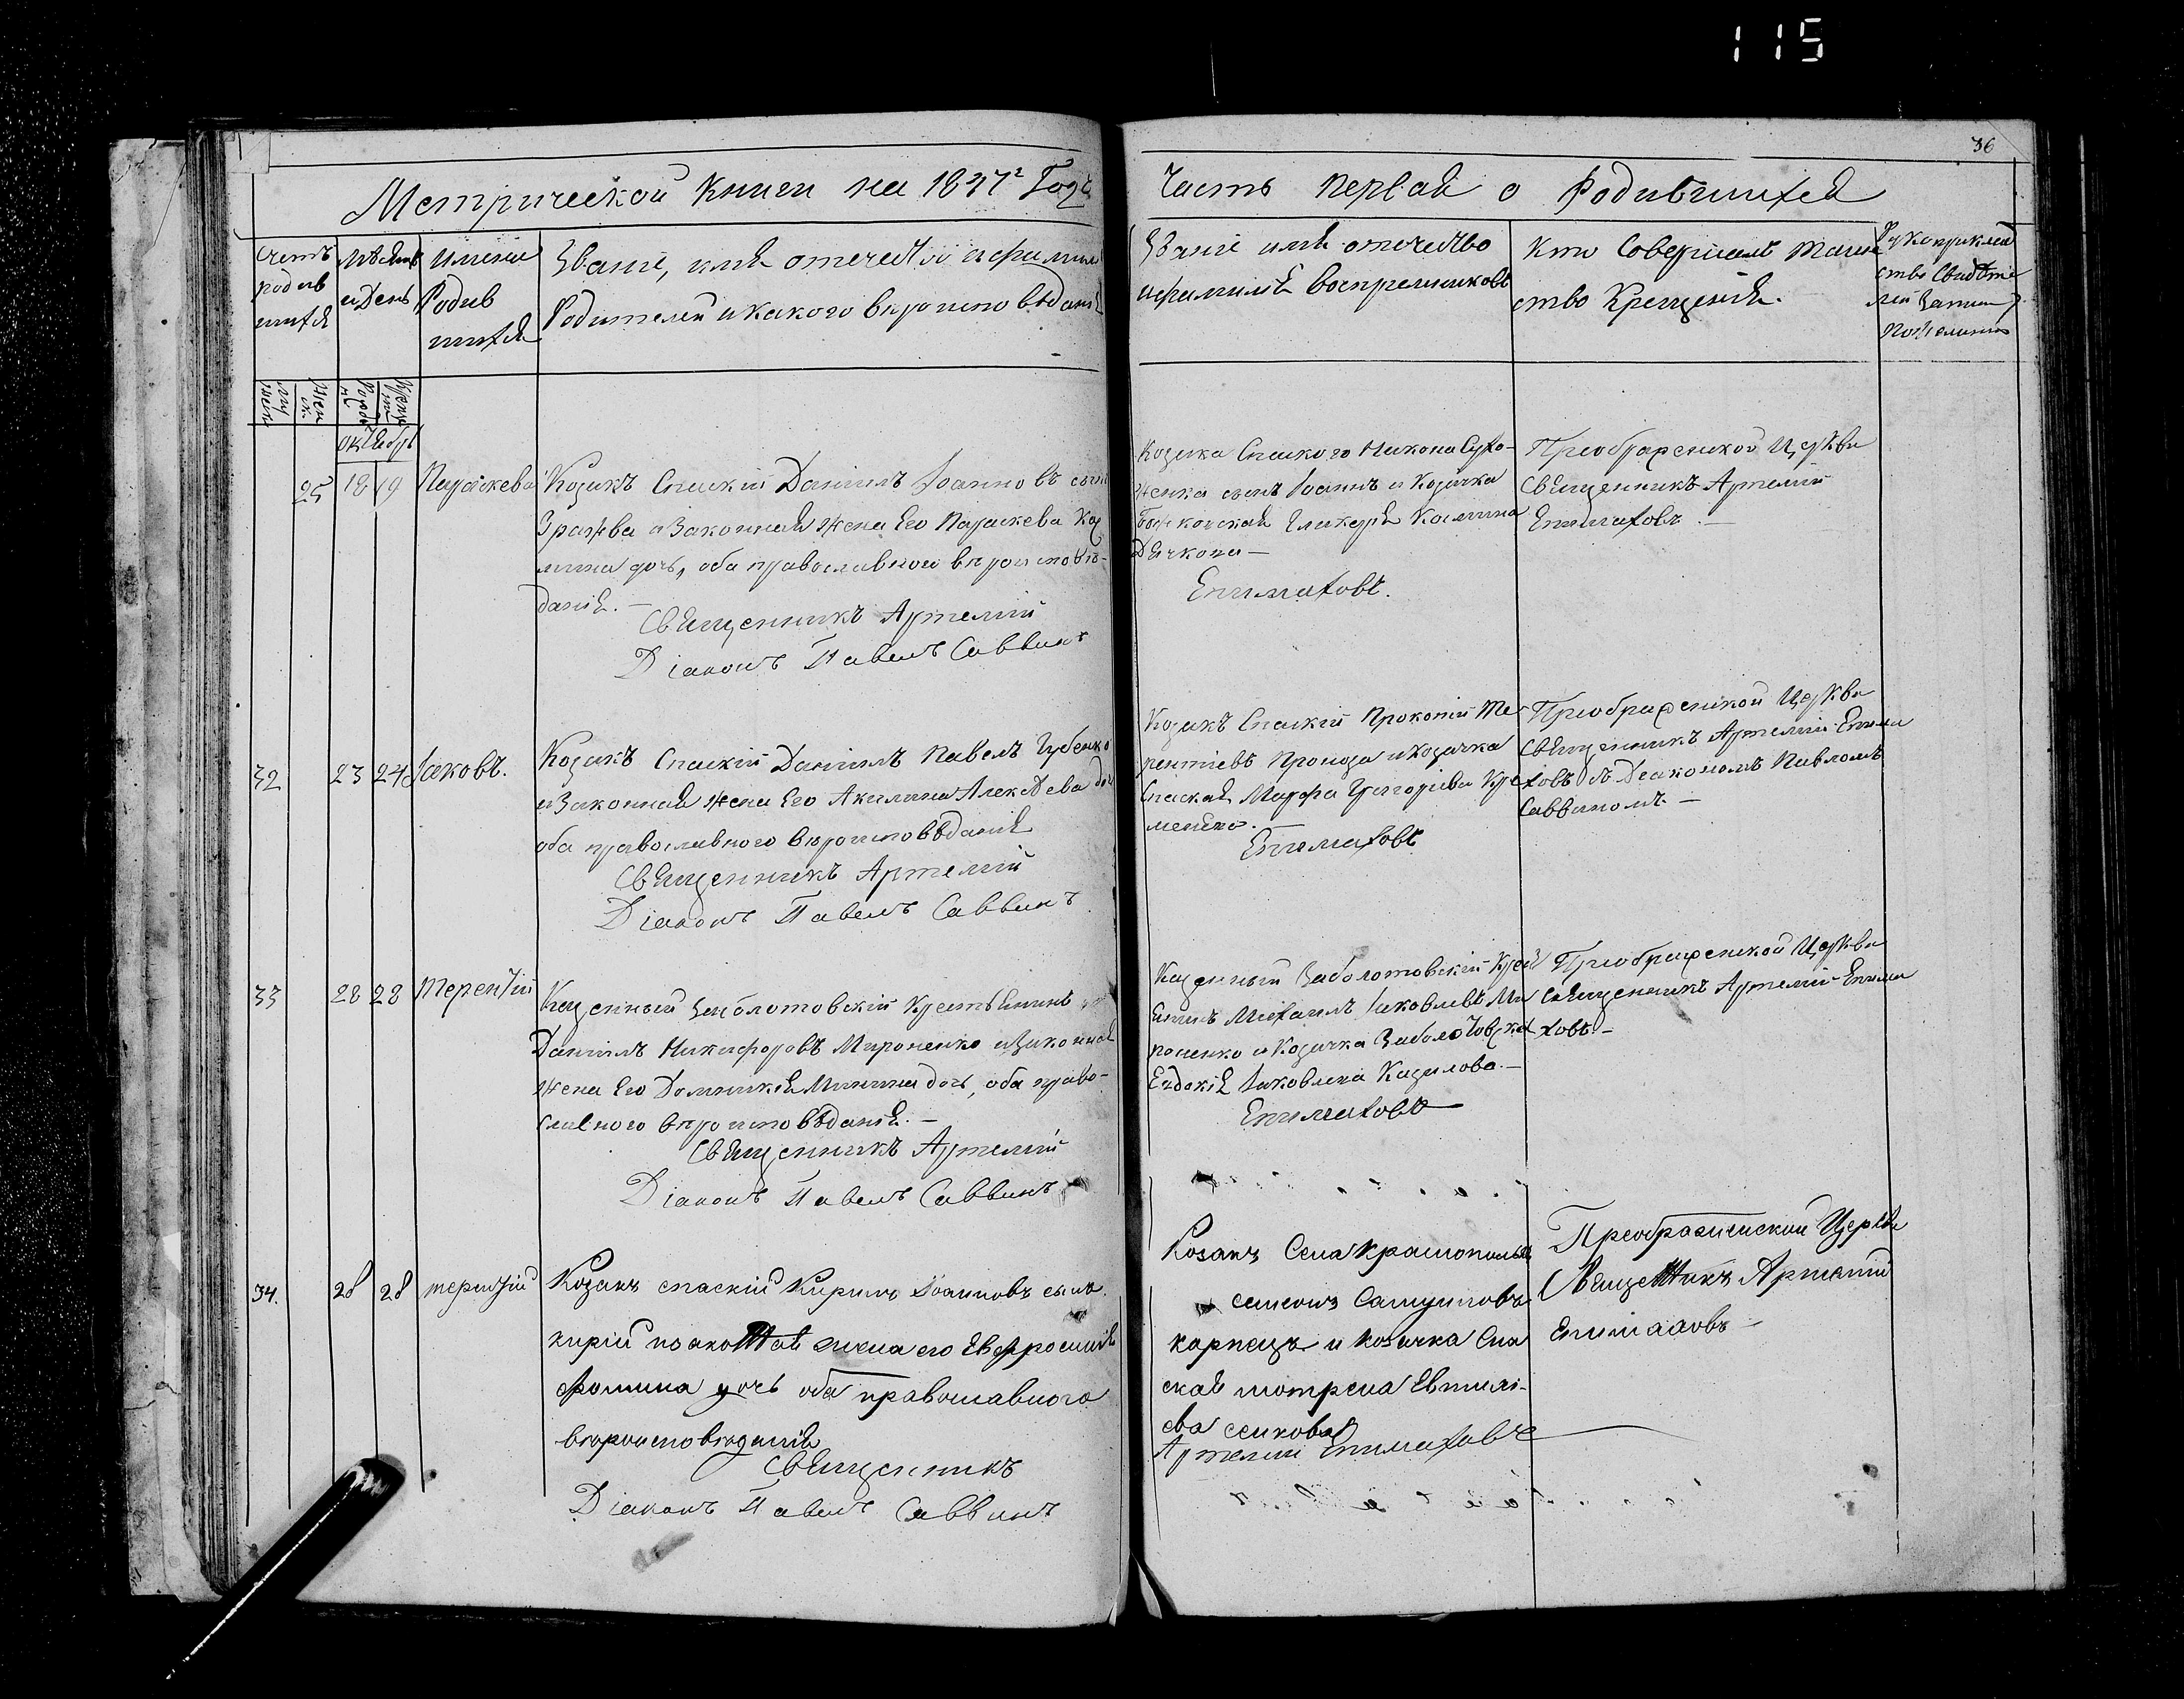 115
36
Метрической Книги на 1837г Годъ
Часть первая о Родившихся
Счетъ родив шихся
Мѣсяцъ и День
Имена Родив шихся
Званіе, имя отечество и фамилія
Родителей и какого вѣроисповѣданія
Званіе имя отечество
и фамилія восприемниковъ
Кто Совершалъ таин
ство Крещенія.
Рукоприклад
ство свидѣте
лей записи
по желанію
муж жен
Октябрь
25 18 19 Параскева
Козакъ Спаскій Даніилъ Іоанновъ сынъ
и Законная жена Его Параскева
дочь, оба православного вѣроисповѣ-
данія. —
Священникъ Артемій
Діаконъ Павелъ Саввинъ
Козака Спаского Никона Сухо-
женка сынъ Іоаннъ и Козачка
Гликерія
Дячкова —
Епимаховъ.
Преображенской Церкви
Священникъ Артемій
Епимаховъ. —
32 23 24 Іаковъ.
Козакъ Спаскій Даніилъ Павелъ Губенко
и Законная жена Его Акилина Алексѣева доч
оба православного вѣроисповѣданія
Священникъ Артемій
Діаконъ Павелъ Саввинъ
Козакъ Спаскій Прокопій Те
рентіевъ и Козачка
Спаская Марфа Григоріева Кре
менко. —
Епимаховъ
Преображенской Церкви
Священникъ Артемій Епима
ховъ съ Деакономъ Павломъ
Саввиномъ. —
33 28 28 Терентій
Казенный Заболотовскій Крестьянинъ
Даніилъ Никифоровъ Мироненко и Законная
жена Его Домникія Минина дочь, оба право-
славного вѣроисповѣданія. —
Священникъ Артемій
Діаконъ Павелъ Саввинъ
Казенный Заболотовскій Крест
янинъ Михаилъ Іаковлевъ Ми
роненко и Козачка Заболотовская
Евдокія Іаковлева Казилова. —
Епимаховъ
Преображенской Церкви
священникъ Артемій Епима
ховъ. —
34. 28 28 терентій
Козакъ спаскій Кирилъ Іоанновъ сынъ
кирій изаконная жена его Евфросинія
фомина дочь оба православного
вѣроисповѣданія
Священникъ
Діаконъ Павелъ Саввинъ
Козакъ Села Краснополья
семенъ Самуиловъ
карпецъ и козачка Спа
ская мотрена Евтихі-
ева сенкова
Артемій Епимаховъ
Преображенской Церкви
Священникъ Артемій
Епимаховъ —